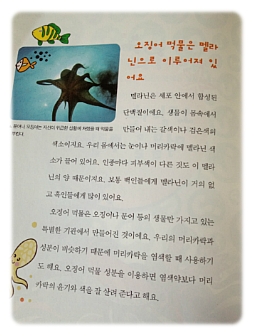 오징어 먹물은 멜라
닌으로 이루어져 있
어요
멜라닌은 세포 안에서 합성된
단백질이에요. 생물이 몸속에서
만들어 내는 갈색이나 검은색의
색소이지요. 우리 몸에서는 눈이나 머리카락에 멜라닌 색
소가 들어 있어요. 인종마다 피부색이 다른 것도 이 멜라
닌의 양 때문이지요. 보통 백인들에게 멜라닌이 거의 없
고 흑인들에게 많이 있어요.
오징어 먹물은 오징어나 문어 등의 생물만 가지고 있는
특별한 기관에서 만들어진 것이에요. 우리의 머리카락과
성분이 비슷하기 때문에 머리카락을 염색할 때 사용하기
도 해요. 오징어 먹물 성분을 이용하면 염색약보다 머리
카락의 윤기와 색을 잘 살려 준다고 해요.